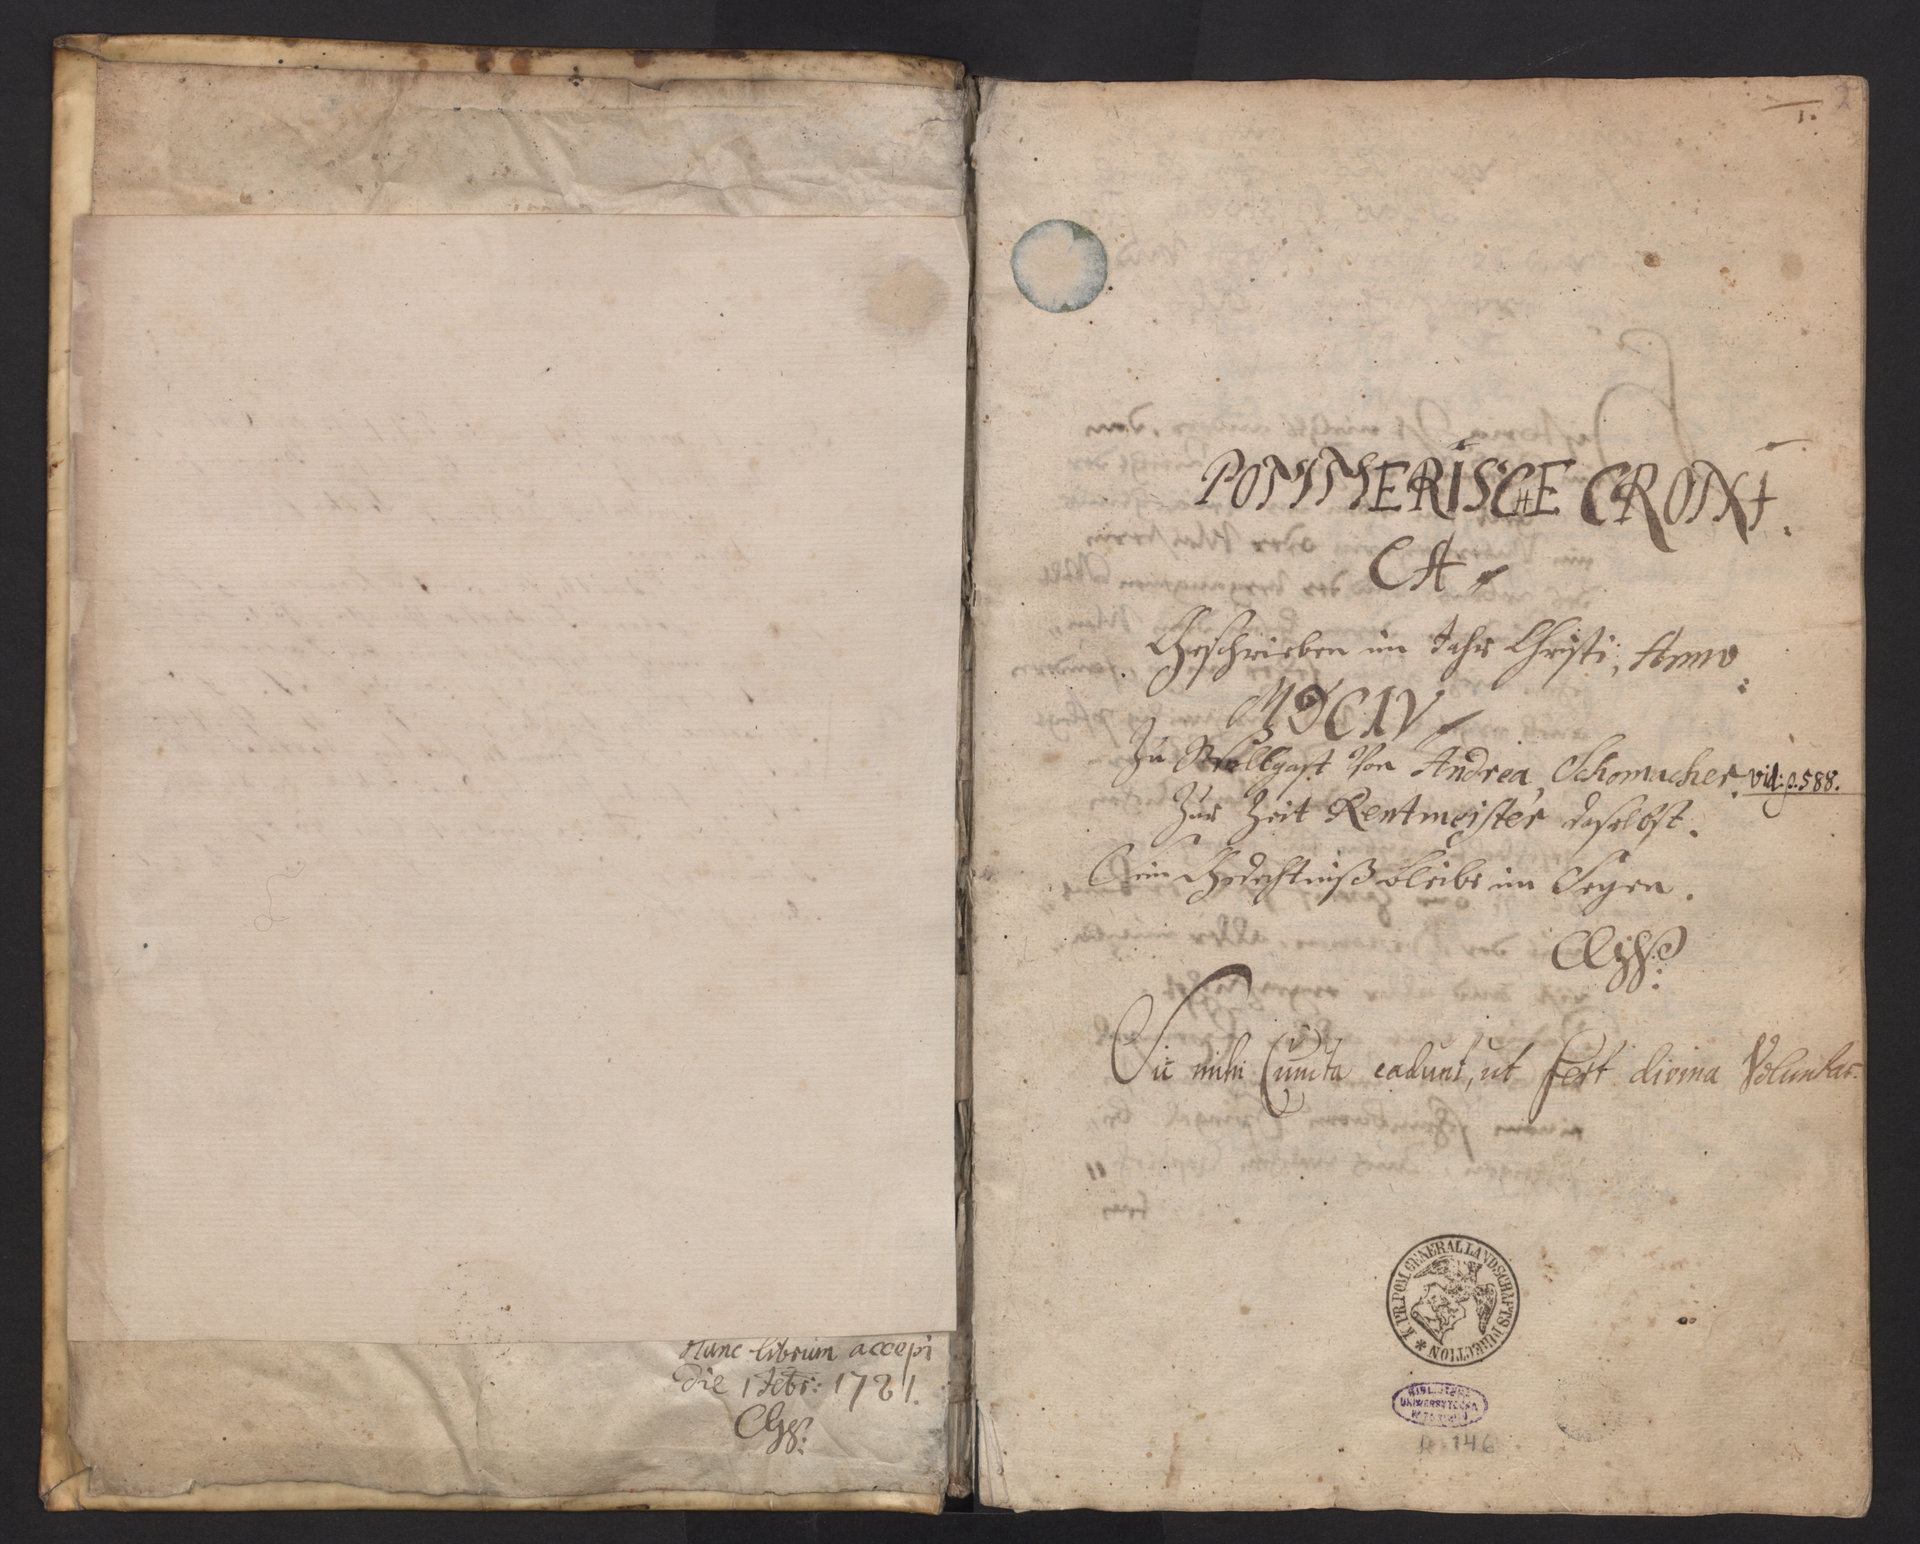 Hunc librum accepi
die 1 Febr: 1781.
1.
POMMERISCHE CRONI
CA
Geschrieben im Jahr Christi, Anno
MDCIV
Zu Wollgast Von Andrea Schomacher. vid: p. 588.
Zur Zeit Rentmeister daselbst.
Sein Gedechtniß bleibe im Segen.
Sic mihi Cuncta cadunt, ut fert divina Voluntas.
K. PR. POM. GENERAL LANDSCHAFTS DIRECTION
BIBLIOTEKA
UNIWERSYTECKA
W TORUNIU
146